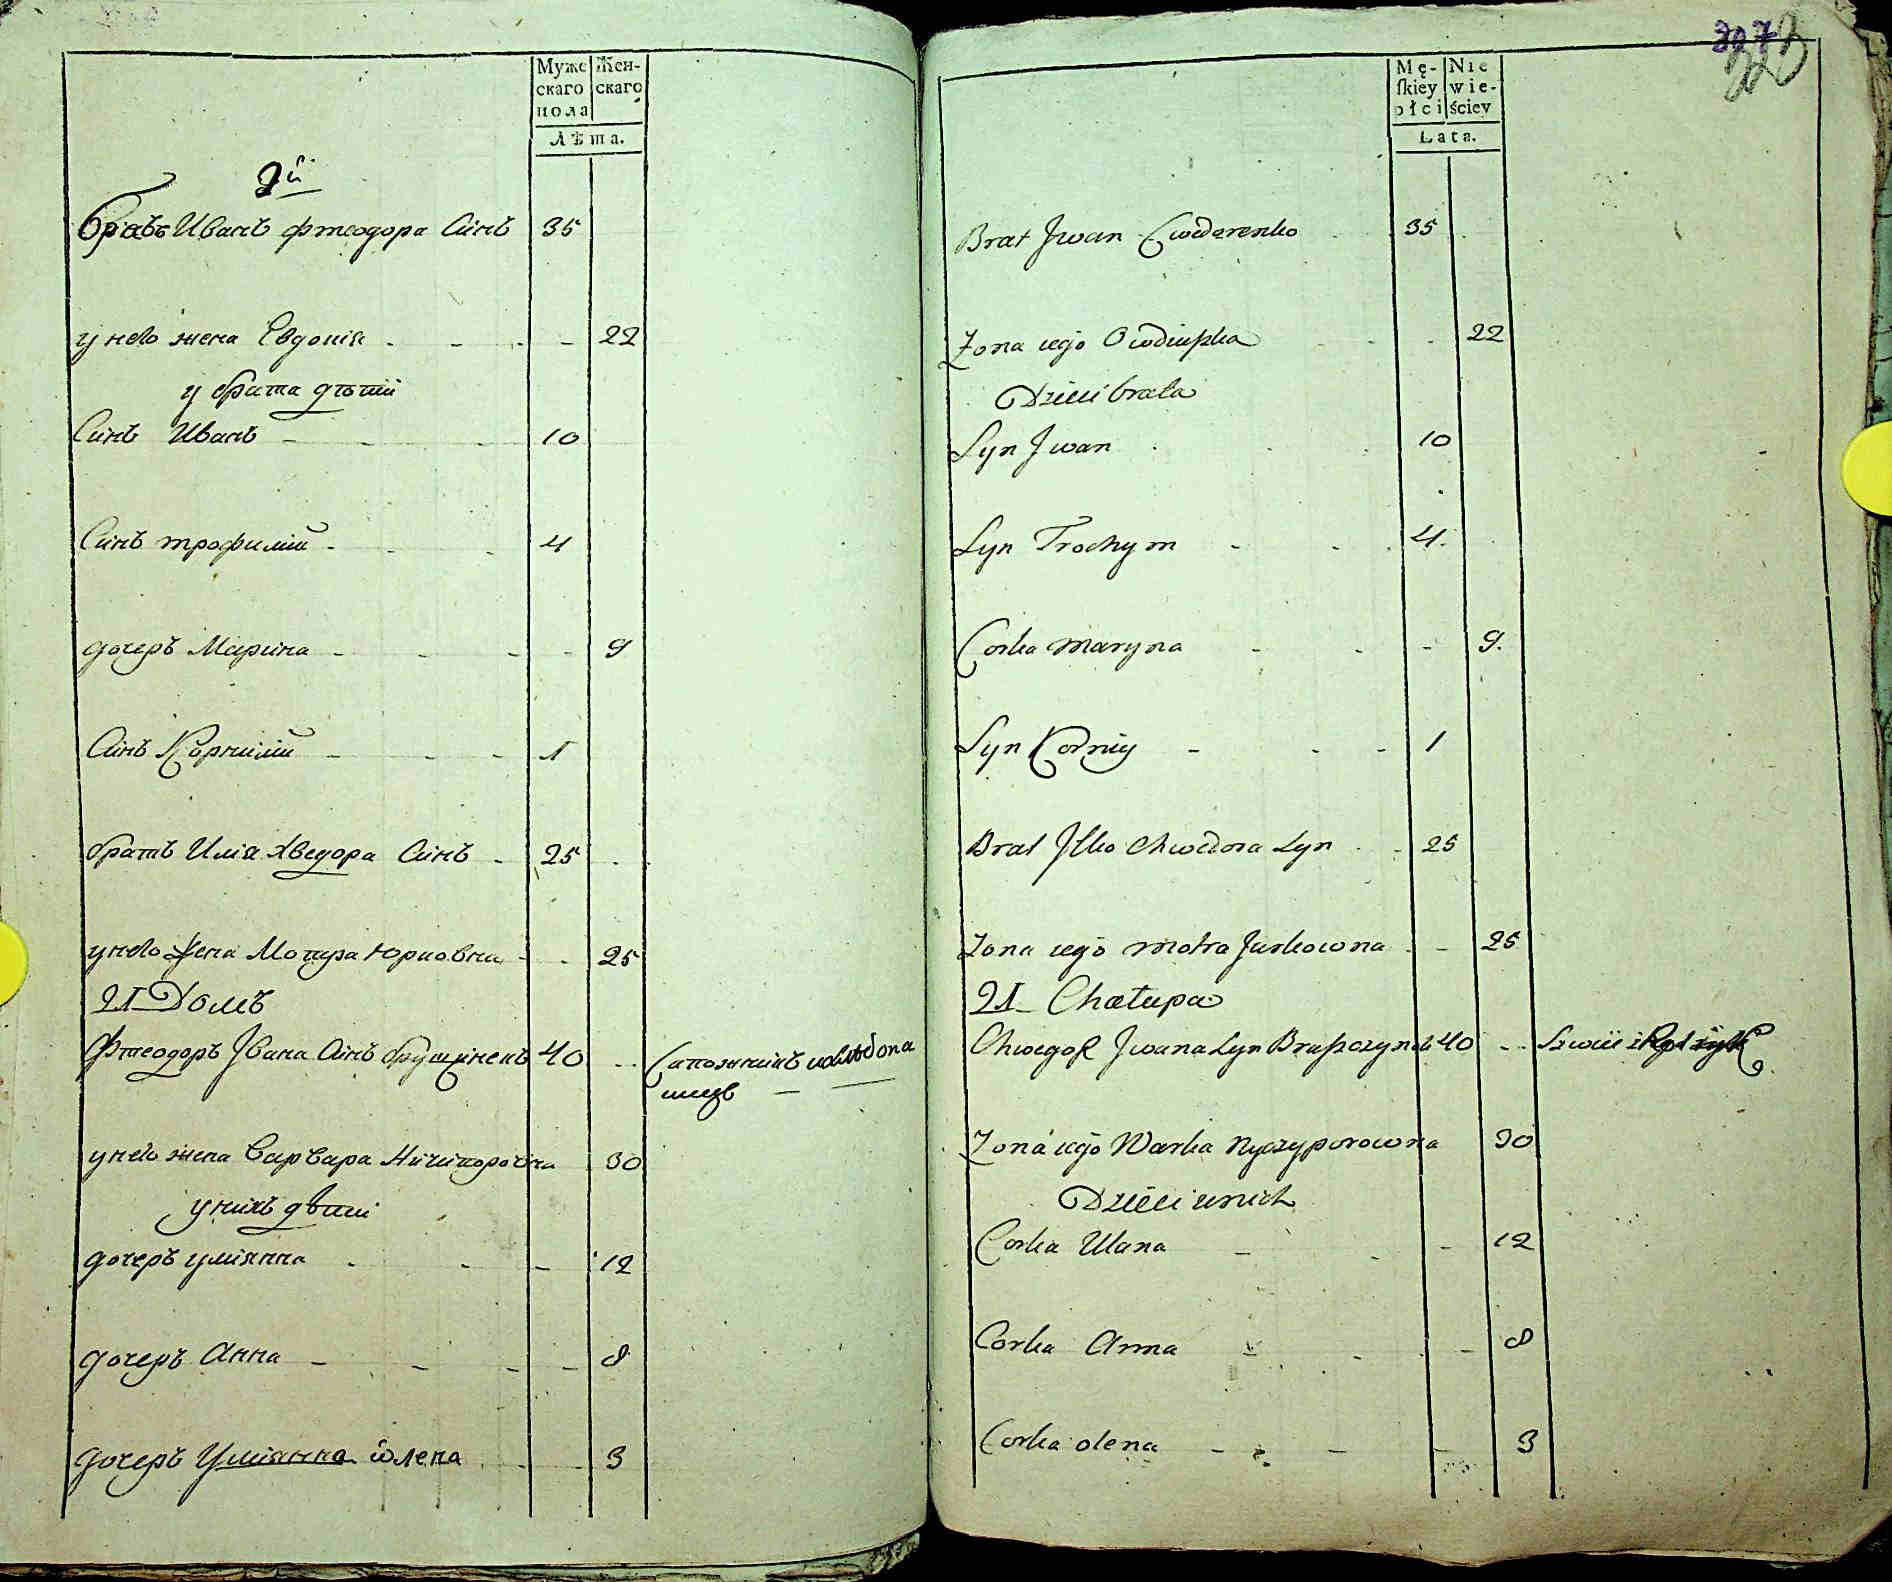 Муже
скаго
пола
Жен-
скаго
Лѣта.
2й
братъ Иванъ Фтеодора Синъ 35
у нево жена Евдокія - - - - 22
у брата дѣтій
Синъ Иванъ - - - 10
Синъ трофимій - - - 4
дочеръ Марина - - - - 9
Синъ Корнилій - - - 1
братъ Илія Хведора Синъ - 25
у нево жена Мотря Юрковна - - 25
21 Домъ
Фтеодоръ Івана Синъ 40 - -
Сапожникъ
швецъ
у нево жена Варвара Ничипоровна 30
у нихъ дѣтій
дочеръ улиянна - - - 12
дочеръ Анна - - - - 8
дочеръ Улиянна ѡлена 3
327
Mę-
ſkiey
płci
Nie
wie-
ściey
Lata.
Brat Jwan Chwederenko 35
Zona iego Owdiuszka 22
Dzieci brata
Syn Jwan 10
Syn Trochym - - - 4.
Corka Maryna - - - 9.
Syn Korniy - - - 1
Brat Jlko Chwedora Syn 25
Zona iego Motra Jurkowna - - 25
21 - Chałupa
Chwedor Jwana Syn 40 - -
Zona iego Warka Nyczyporowna 30
Dzieci u nich
Corka Ulana - - - 12
Corka Anna - - - 8
Corka olena - - - - 3